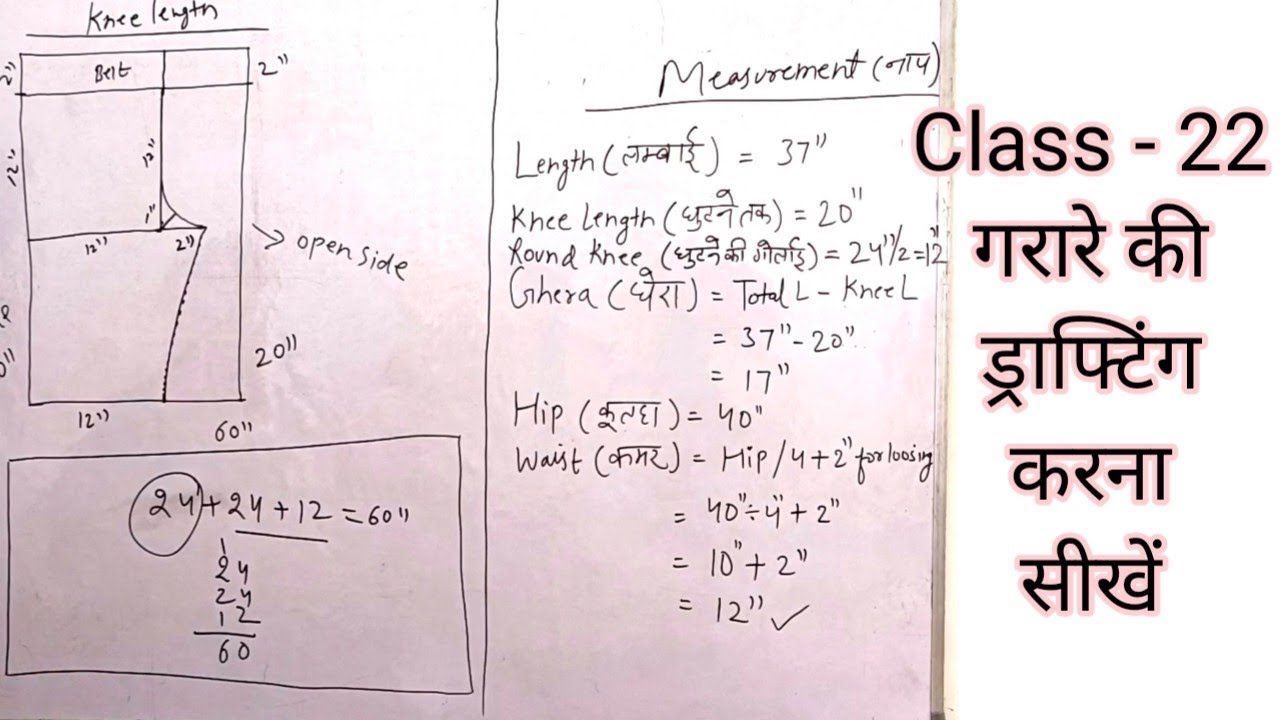 Knee length
Belt
2"
2"
12"
12"
1"
12"
2"
open side
20"
12"
60"
24 + 24 + 12 = 60"
1
24
24
12
60
Measurement (नाप)
Length (लम्बाई) = 37"
Knee Length (घुटने तक) = 20"
Round Knee (घुटने की गोलाई) = 24"/2 = 12"
Ghera (घेरा) = Total L - Knee L
= 37" - 20"
= 17"
Hip (कूल्हा) = 40"
Waist (कमर) = Hip/4 + 2" for loosing
= 40" ÷ 4" + 2"
= 10" + 2"
= 12" ✓
Class - 22
गरारे की
ड्राफ्टिंग
करना
सीखें